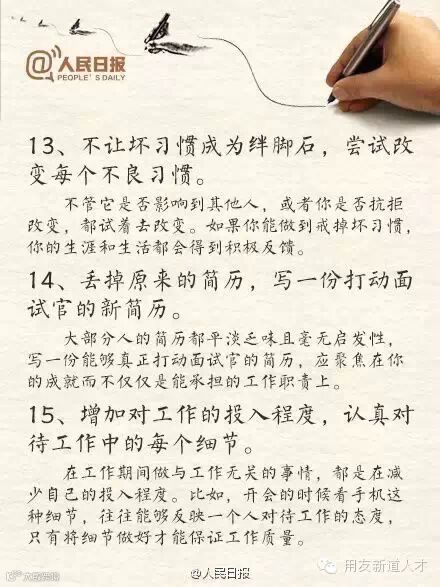 @人民日报
PEOPLE'S DAILY
13、不让坏习惯成为绊脚石，尝试改
变每个不良习惯。
不管它是否影响到其他人，或者你是否抗拒
改变，都试着去改变。如果你能做到戒掉坏习惯，
你的生涯和生活都会得到积极反馈。
14、丢掉原来的简历，写一份打动面
试官的新简历。
大部分人的简历都平淡乏味且毫无启发性，
写一份能够真正打动面试官的简历，应聚焦在你
的成就而不仅仅是能承担的工作职责上。
15、增加对工作的投入程度，认真对
待工作中的每个细节。
在工作期间做与工作无关的事情，都是在减
少自己的投入程度。比如，开会的时候看手机这
种细节，往往能够反映一个人对待工作的态度，
只有将细节做好才能保证工作质量。
@人民日报
用友新道人才